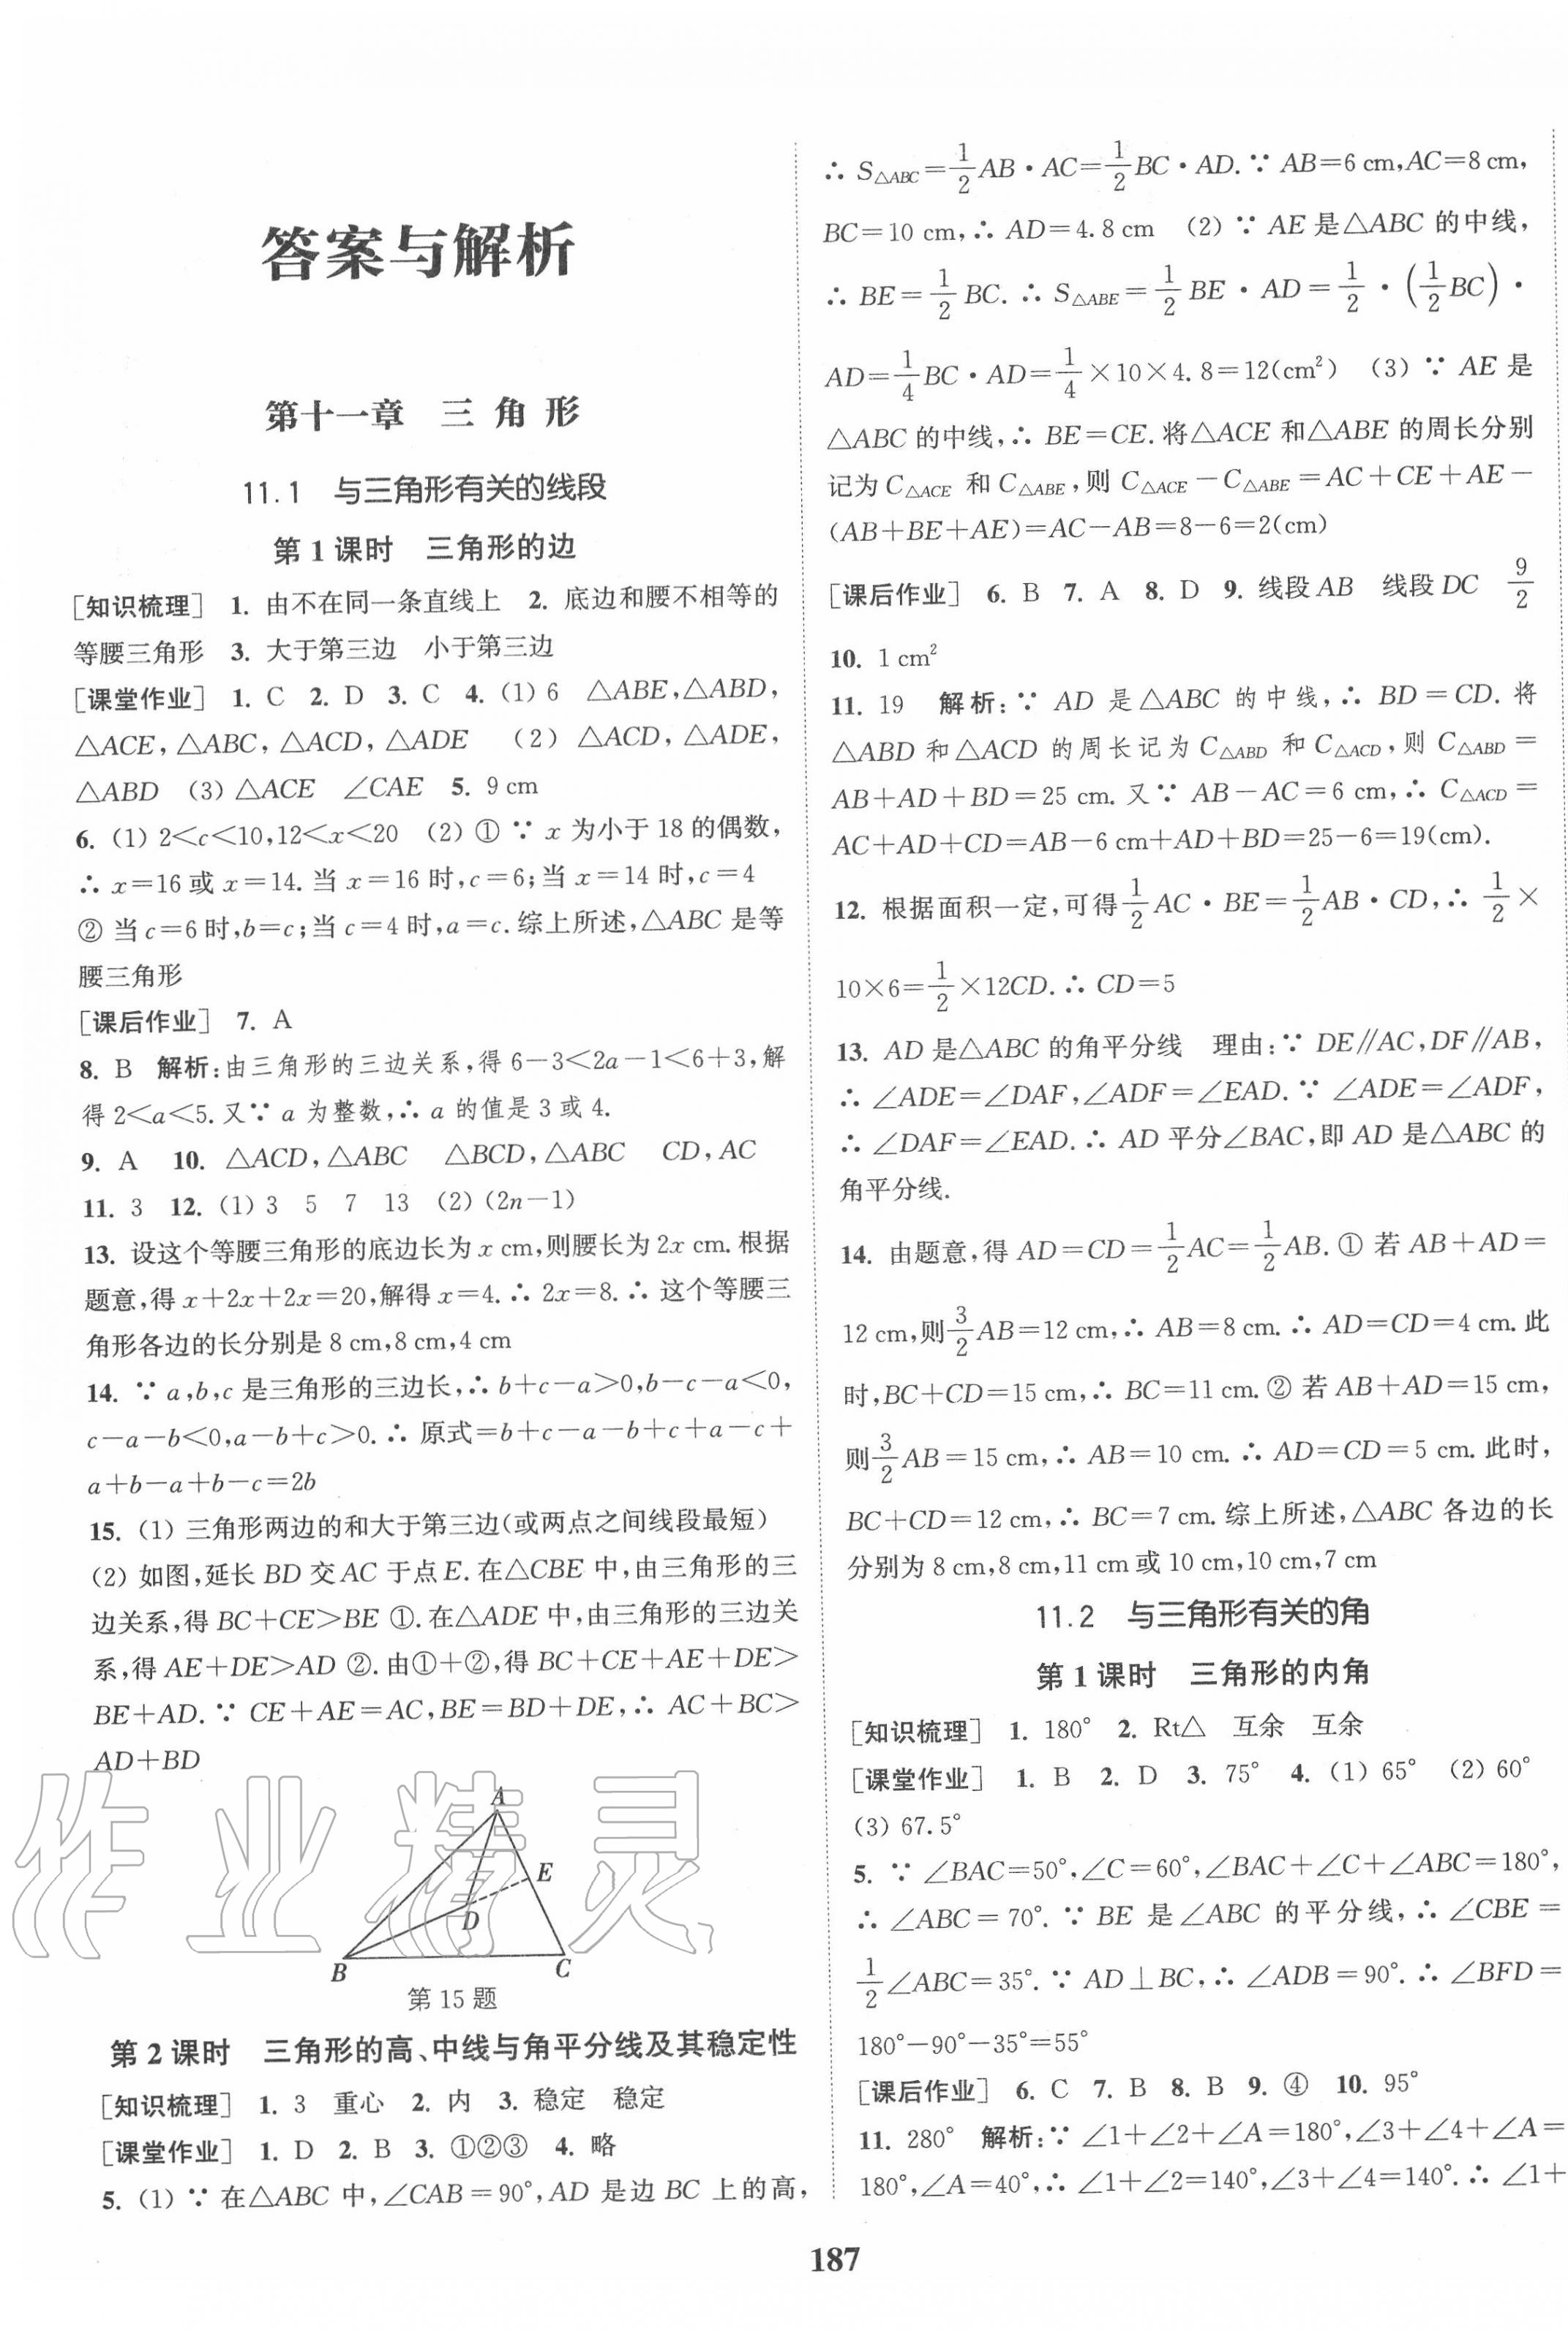 答案与解析
第十一章 三 角 形
11.1 与三角形有关的线段
第1课时 三角形的边
[知识梳理] 1. 由不在同一条直线上 2. 底边和腰不相等的
等腰三角形 3. 大于第三边 小于第三边
[课堂作业] 1. C 2. D 3. C 4. (1) 6 △ABE,△ABD,
△ACE,△ABC,△ACD,△ADE (2) △ACD,△ADE,
△ABD (3) △ACE ∠CAE 5. 9 cm
6. (1) 2<c<10,12<x<20 (2) ① ∵ x 为小于 18 的偶数,
∴ x=16 或 x=14. 当 x=16 时,c=6;当 x=14 时,c=4
② 当 c=6 时,b=c;当 c=4 时,a=c. 综上所述,△ABC 是等
腰三角形
[课后作业] 7. A
8. B 解析:由三角形的三边关系,得 6-3<2a-1<6+3,解
得 2<a<5. 又∵ a 为整数,∴ a 的值是 3 或 4.
9. A 10. △ACD,△ABC △BCD,△ABC CD,AC
11. 3 12. (1) 3 5 7 13 (2) (2n-1)
13. 设这个等腰三角形的底边长为 x cm,则腰长为 2x cm. 根据
题意,得 x+2x+2x=20,解得 x=4. ∴ 2x=8. ∴ 这个等腰三
角形各边的长分别是 8 cm,8 cm,4 cm
14. ∵ a,b,c 是三角形的三边长,∴ b+c-a>0,b-c-a<0,
c-a-b<0,a-b+c>0. ∴ 原式=b+c-a-b+c+a-c+
a+b-a+b-c=2b
15. (1) 三角形两边的和大于第三边(或两点之间线段最短)
(2) 如图,延长 BD 交 AC 于点 E. 在△CBE 中,由三角形的三
边关系,得 BC+CE>BE ①. 在△ADE 中,由三角形的三边关
系,得 AE+DE>AD ②. 由①+②,得 BC+CE+AE+DE>
BE+AD. ∵ CE+AE=AC,BE=BD+DE,∴ AC+BC>
AD+BD
A
E
D
B
C
第 15 题
作业精灵
第2课时 三角形的高、中线与角平分线及其稳定性
[知识梳理] 1. 3 重心 2. 内 3. 稳定 稳定
[课堂作业] 1. D 2. B 3. ①②③ 4. 略
5. (1) ∵ 在△ABC 中,∠CAB=90°,AD 是边 BC 上的高,
∴ S△ABC=1/2AB·AC=1/2BC·AD. ∵ AB=6 cm,AC=8 cm,
BC=10 cm,∴ AD=4.8 cm (2) ∵ AE 是△ABC 的中线,
∴ BE=1/2BC. ∴ S△ABE=1/2BE·AD=1/2·(1/2BC)·
AD=1/4BC·AD=1/4×10×4.8=12(cm²) (3) ∵ AE 是
△ABC 的中线,∴ BE=CE. 将△ACE 和△ABE 的周长分别
记为 C△ACE 和 C△ABE,则 C△ACE-C△ABE=AC+CE+AE-
(AB+BE+AE)=AC-AB=8-6=2(cm)
[课后作业] 6. B 7. A 8. D 9. 线段 AB 线段 DC 9/2
10. 1 cm²
11. 19 解析:∵ AD 是△ABC 的中线,∴ BD=CD. 将
△ABD 和△ACD 的周长记为 C△ABD 和 C△ACD,则 C△ABD=
AB+AD+BD=25 cm. 又∵ AB-AC=6 cm,∴ C△ACD=
AC+AD+CD=AB-6 cm+AD+BD=25-6=19(cm).
12. 根据面积一定,可得1/2AC·BE=1/2AB·CD,∴ 1/2×
10×6=1/2×12CD. ∴ CD=5
13. AD 是△ABC 的角平分线 理由:∵ DE∥AC,DF∥AB,
∴ ∠ADE=∠DAF,∠ADF=∠EAD. ∵ ∠ADE=∠ADF,
∴ ∠DAF=∠EAD. ∴ AD 平分∠BAC,即 AD 是△ABC 的
角平分线.
14. 由题意,得 AD=CD=1/2AC=1/2AB. ① 若 AB+AD=
12 cm,则3/2AB=12 cm,∴ AB=8 cm. ∴ AD=CD=4 cm. 此
时,BC+CD=15 cm,∴ BC=11 cm. ② 若 AB+AD=15 cm,
则3/2AB=15 cm,∴ AB=10 cm. ∴ AD=CD=5 cm. 此时,
BC+CD=12 cm,∴ BC=7 cm. 综上所述,△ABC 各边的长
分别为 8 cm,8 cm,11 cm 或 10 cm,10 cm,7 cm
11.2 与三角形有关的角
第1课时 三角形的内角
[知识梳理] 1. 180° 2. Rt△ 互余 互余
[课堂作业] 1. B 2. D 3. 75° 4. (1) 65° (2) 60°
(3) 67.5°
5. ∵ ∠BAC=50°,∠C=60°,∠BAC+∠C+∠ABC=180°,
∴ ∠ABC=70°. ∵ BE 是∠ABC 的平分线,∴ ∠CBE=
1/2∠ABC=35°. ∵ AD⊥BC,∴ ∠ADB=90°. ∴ ∠BFD=
180°-90°-35°=55°
[课后作业] 6. C 7. B 8. B 9. ④ 10. 95°
11. 280° 解析:∵ ∠1+∠2+∠A=180°,∠3+∠4+∠A=
180°,∠A=40°,∴ ∠1+∠2=140°,∠3+∠4=140°. ∴ ∠1+
187